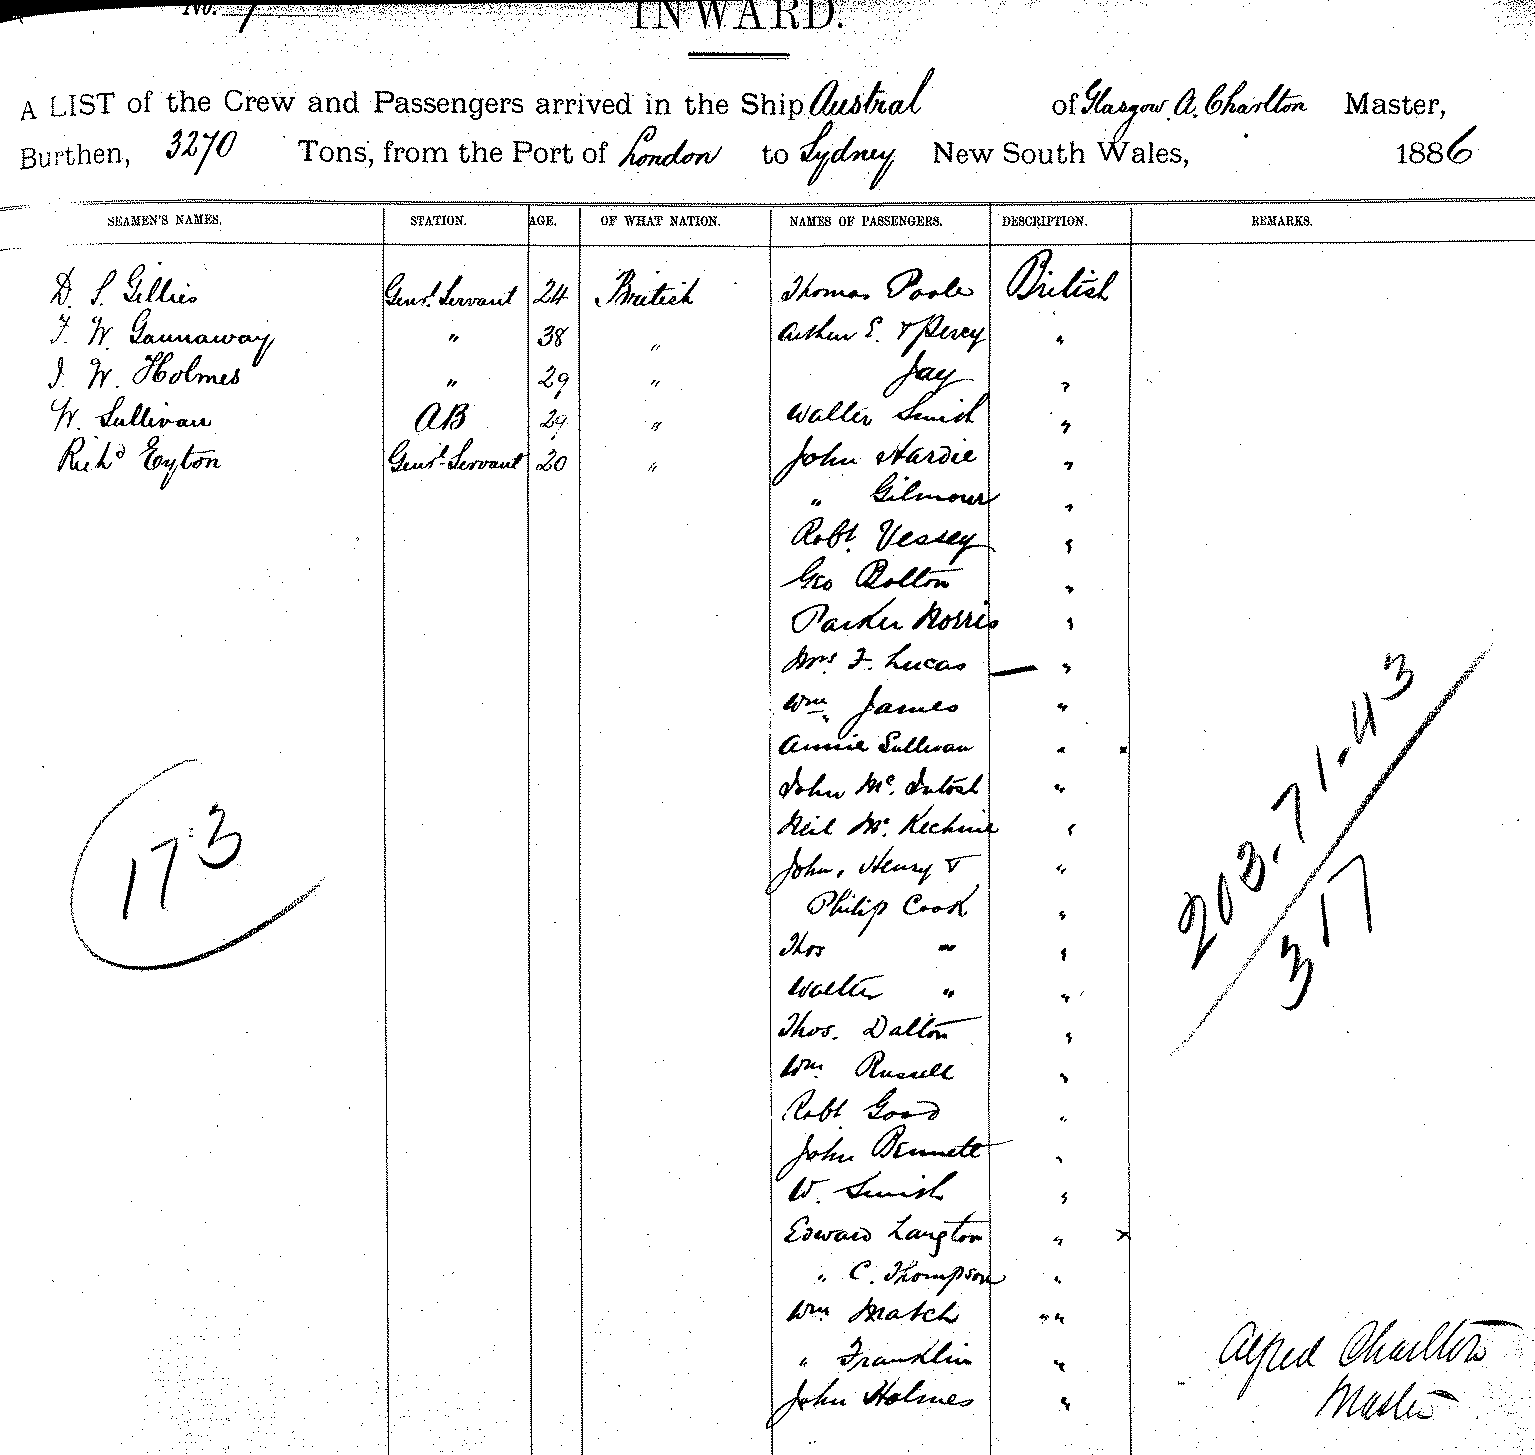 No. 7
INWARD.
A LIST of the Crew and Passengers arrived in the Ship Austral of Glasgow, A. Charlton Master,
Burthen, 3270 Tons, from the Port of London to Sydney New South Wales, 1886
SEAMEN'S NAMES. STATION. AGE. OF WHAT NATION. NAMES OF PASSENGERS. DESCRIPTION. REMARKS.
D. S. Gillies Genrl. Servant 24 British Thomas Poole British
F. W. Gannaway " 38 " Arthur E. & Percy "
J. W. Holmes " 29 " Jay "
W. Sullivan AB 29 " Walter Smith "
Richd Eyton Genrl. Servant 20 " John Hardie "
" Gilmour "
Robt. Vessey "
Geo Bolton "
Parker Norris "
Mrs. F. Lucas — "
Wm James "
Annie Sullivan " x
John Mc. Intosh "
Neil Mc. Kechnie "
John, Henry & "
Philip Cook "
Thos " "
Walter " "
Thos. Dalton "
Wm Russell "
Robt Good "
John Bennett "
W. Smith "
Edward Langton " x
" C. Thompson "
Wm Match " "
" Franklin "
John Holmes "
173
203.71.43
317
Alfred Charlton
Master